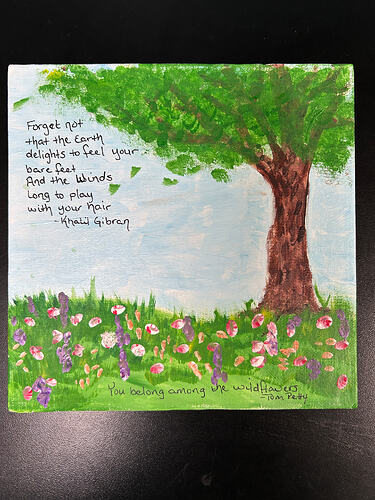 Forget not
that the Earth
delights to feel your
bare feet
And the Winds
Long to play
with your hair
- Khalil Gibran
You belong among the wildflowers
- Tom Petty